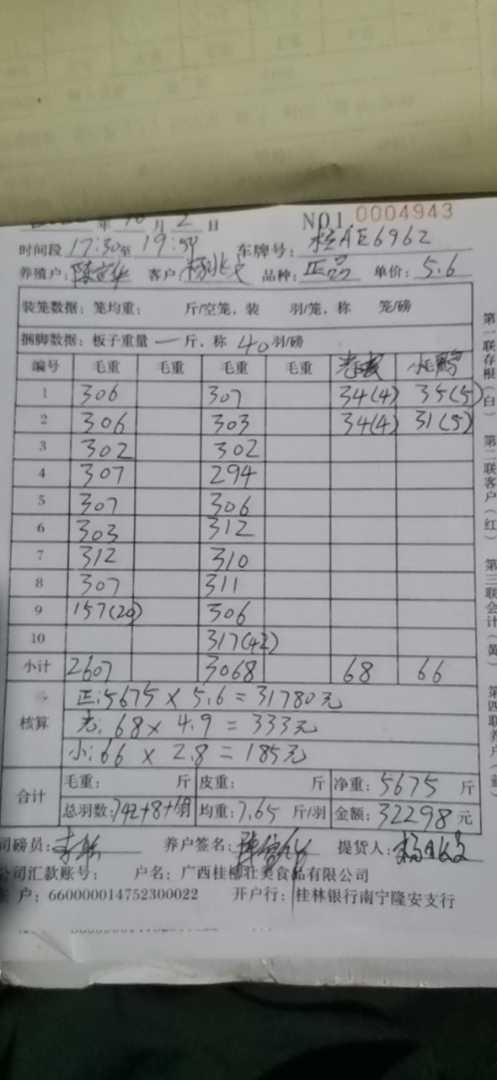 年 10 月 2 日 NO1 0004943
时间段 17:30至 19:54 车牌号: 桂AE6962
养殖户: 客户: 品种: 正品 单价: 5.6
装笼数据: 笼均重: 斤/空笼, 装 羽/笼, 称 笼/磅
捆脚数据: 板子重量 一 斤, 称 40 羽/磅
编号 毛重 毛重 毛重 毛重 小毛鸭
1 306 307 34(4) 35(5)
2 306 303 34(4) 31(5)
3 302 302
4 307 294
5 307 306
6 303 312
7 312 310
8 307 311
9 157(20) 306
10 317(42)
小计 2607 3068 68 66
核算
正:5675 × 5.6 = 31780元
光: 68 × 4.9 = 333元
小: 66 × 2.8 = 185元
合计
毛重: 斤 皮重: 斤 净重: 5675 斤
总羽数: 742+8+ 均重: 7.65 斤/羽 金额: 32298 元
司磅员: 养户签名: 提货人:
公司汇款账号: 户名: 广西桂柳壮美食品有限公司
户: 660000014752300022 开户行: 桂林银行南宁隆安支行
第一联存根(白) 第二联客户(红) 第三联会计(黄) 第四联养户(蓝)